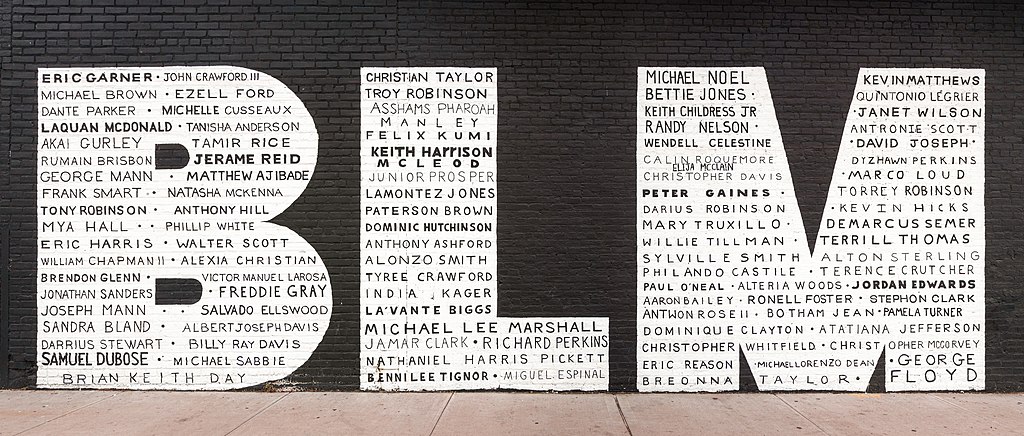 BLM
ERIC GARNER · JOHN CRAWFORD III
MICHAEL BROWN · EZELL FORD
DANTE PARKER · MICHELLE CUSSEAUX
LAQUAN MCDONALD · TANISHA ANDERSON
AKAI GURLEY · TAMIR RICE
RUMAIN BRISBON · JERAME REID
GEORGE MANN · MATTHEW AJIBADE
FRANK SMART · NATASHA MCKENNA
TONY ROBINSON · ANTHONY HILL
MYA HALL · · PHILLIP WHITE
ERIC HARRIS · WALTER SCOTT
WILLIAM CHAPMAN II · ALEXIA CHRISTIAN
BRENDON GLENN · VICTOR MANUEL LAROSA
JONATHAN SANDERS · FREDDIE GRAY
JOSEPH MANN · SALVADO ELLSWOOD
SANDRA BLAND · ALBERT JOSEPH DAVIS
DARRIUS STEWART · BILLY RAY DAVIS
SAMUEL DUBOSE · MICHAEL SABBIE
BRIAN KEITH DAY
CHRISTIAN TAYLOR
TROY ROBINSON
ASSHAMS PHAROAH
MANLEY
FELIX KUMI
KEITH HARRISON
MCLEOD
JUNIOR PROSPER
LAMONTEZ JONES
PATERSON BROWN
DOMINIC HUTCHINSON
ANTHONY ASHFORD
ALONZO SMITH
TYREE CRAWFORD
INDIA KAGER
LA'VANTE BIGGS
MICHAEL LEE MARSHALL
JAMAR CLARK · RICHARD PERKINS
NATHANIEL HARRIS PICKETT
BENNI LEE TIGNOR · MIGUEL ESPINAL
MICHAEL NOEL
BETTIE JONES ·
KEITH CHILDRESS JR
RANDY NELSON ·
WENDELL CELESTINE
CALIN ROQUEMORE
ELIJA MCCLAIN
CHRISTOPHER DAVIS
PETER GAINES ·
DARIUS ROBINSON
MARY TRUXILLO ·
WILLIE TILLMAN ·
SYLVILLE SMITH
KEVIN MATTHEWS
QUINTONIO LÉGRIER
· JANET WILSON
ANTRONIE SCOTT
· DAVID JOSEPH ·
DYZHAWN PERKINS
· MARCO LOUD
TORREY ROBINSON
· KEVIN HICKS
DEMARCUS SEMER
TERRILL THOMAS
ALTON STERLING
PHILANDO CASTILE · TERENCE CRUTCHER
PAUL O'NEAL · ALTERIA WOODS · JORDAN EDWARDS
AARON BAILEY · RONELL FOSTER · STEPHON CLARK
ANTWON ROSE II · BOTHAM JEAN · PAMELA TURNER
DOMINIQUE CLAYTON · ATATIANA JEFFERSON
CHRISTOPHER WHITFIELD · CHRISTOPHER MCCORVEY
ERIC REASON · MICHAEL LORENZO DEAN
BREONNA TAYLOR ·
· GEORGE
FLOYD